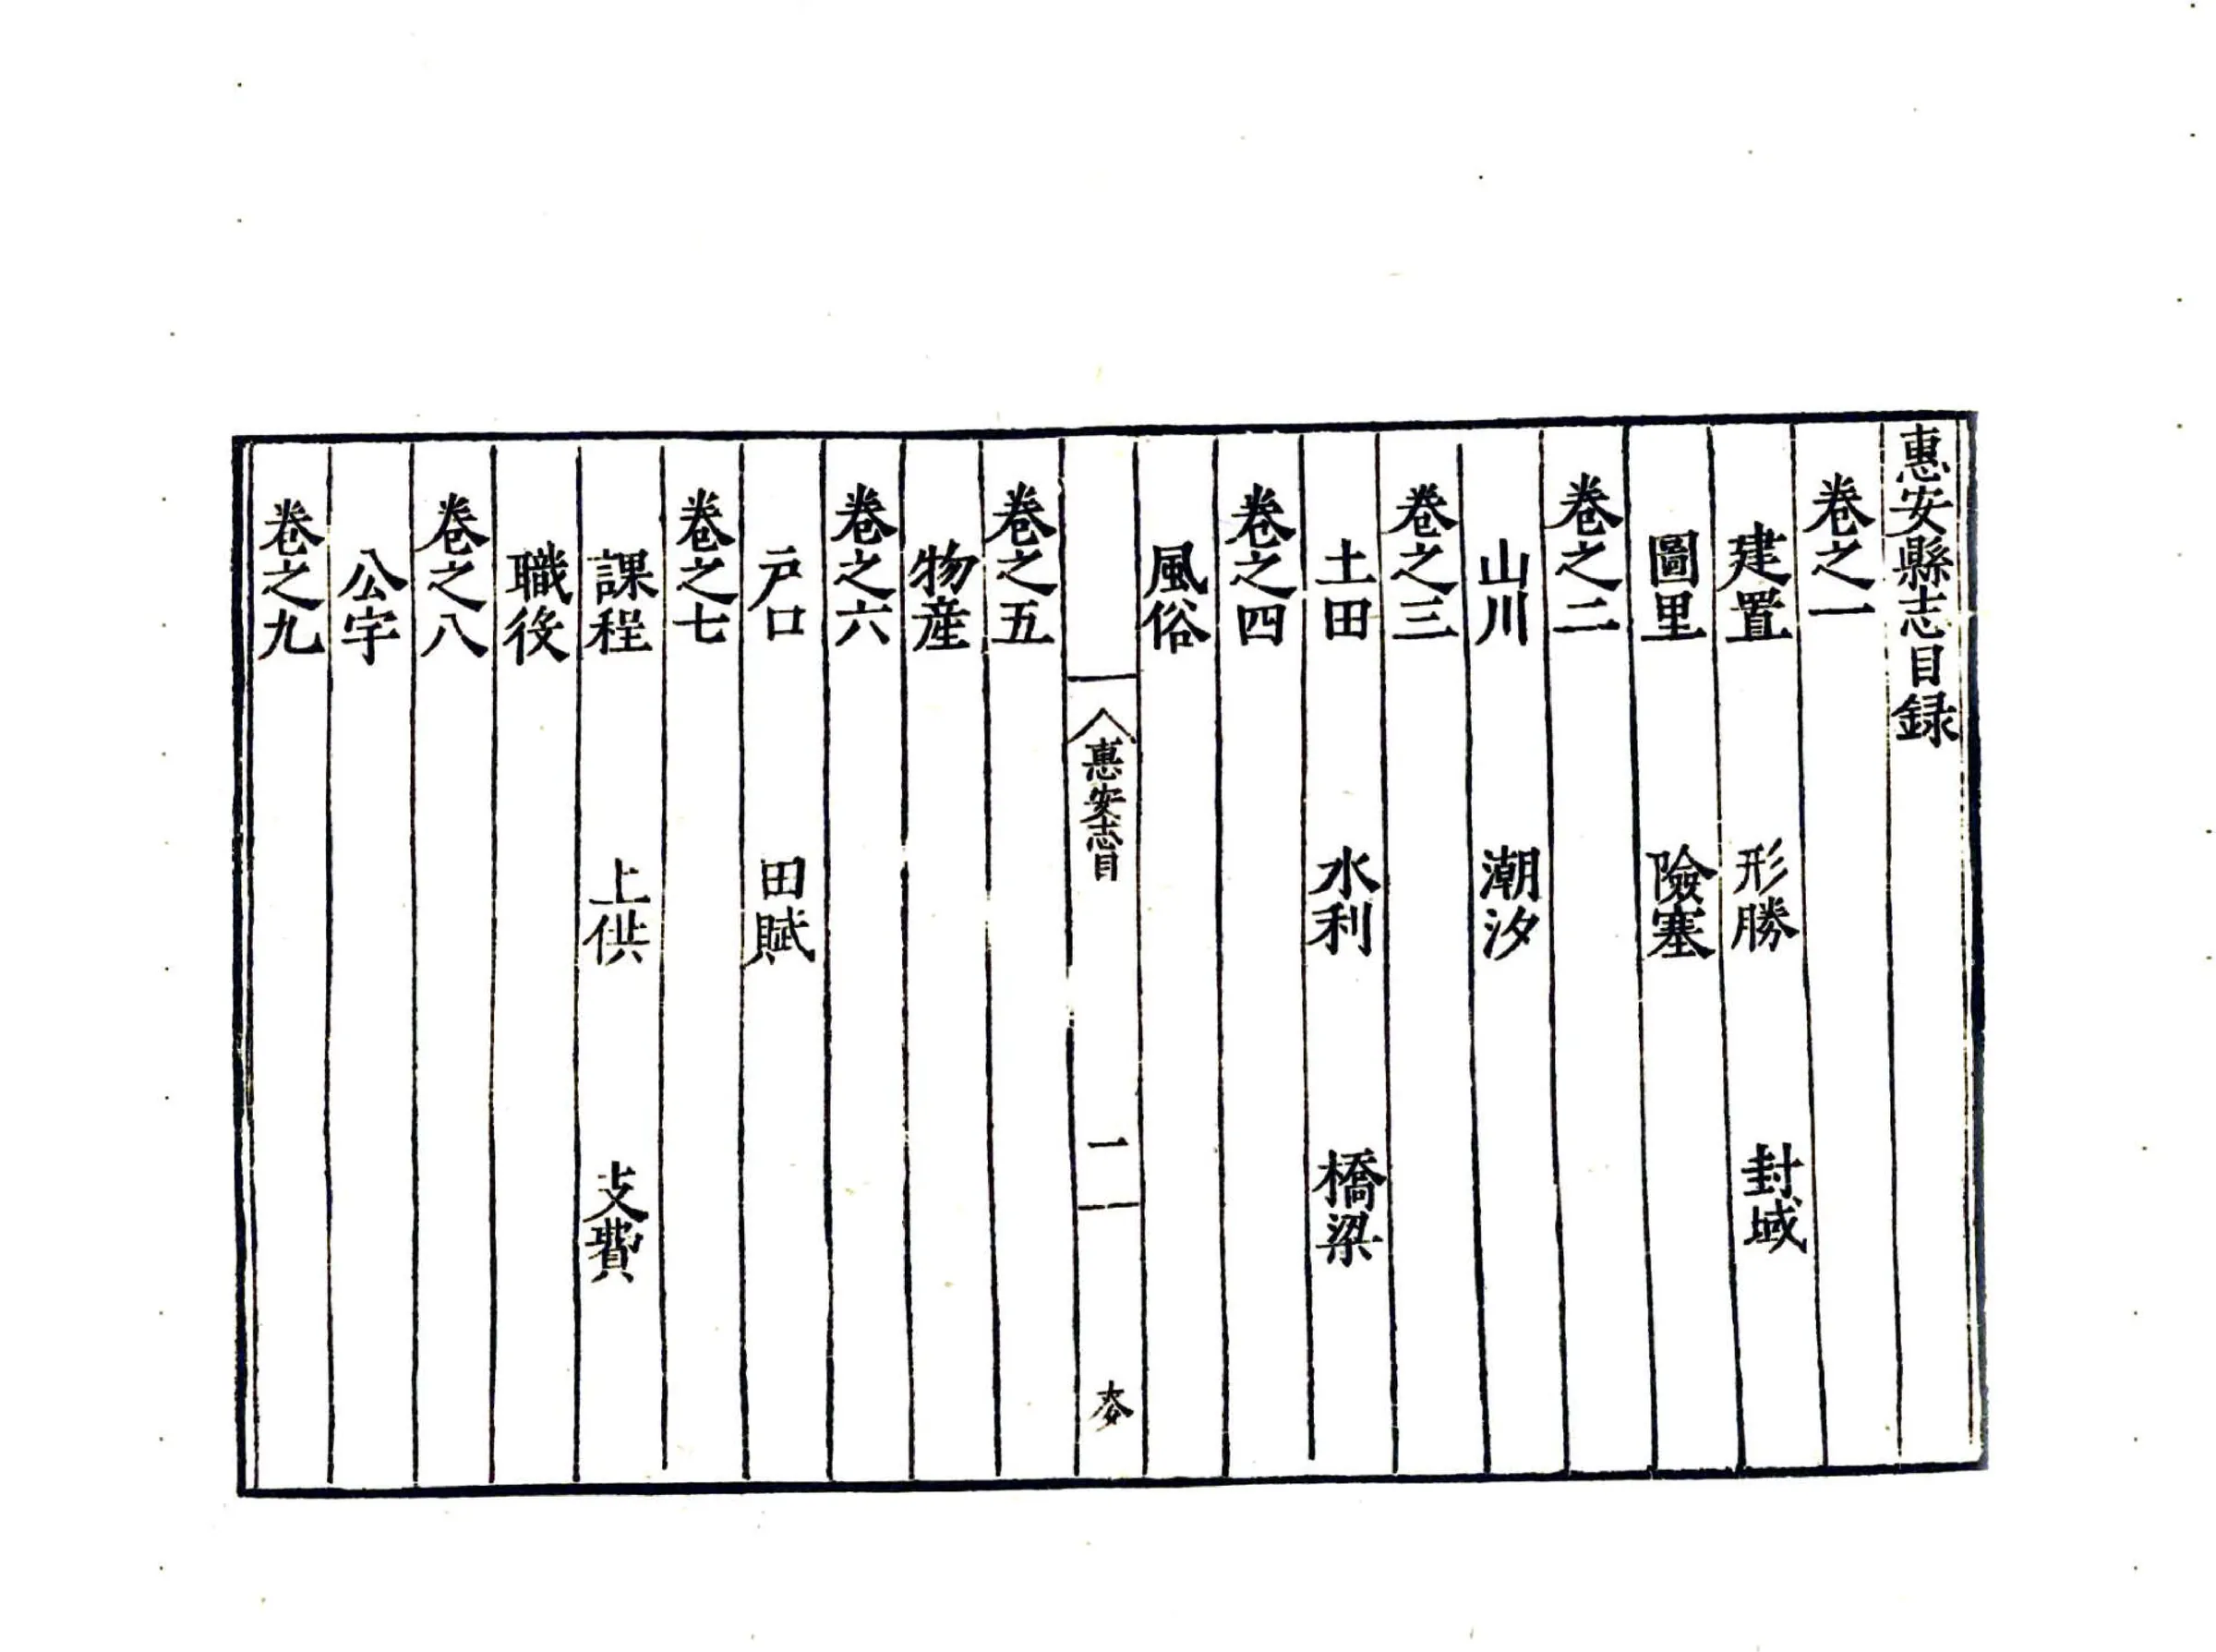 惠安縣志目録
卷之一
建置 形勝 封域
圖里 險塞
卷之二
山川 潮汐
卷之三
土田 水利 橋梁
卷之四
風俗
惠安志目 一
卷之五
物産
卷之六
戸口 田賦
卷之七
課程 上供 支費
職役
卷之八
公宇
卷之九